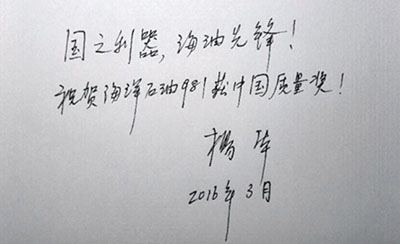 国之利器，海油先锋！
祝贺海洋石油981获中国质量奖！
杨华
2016年3月